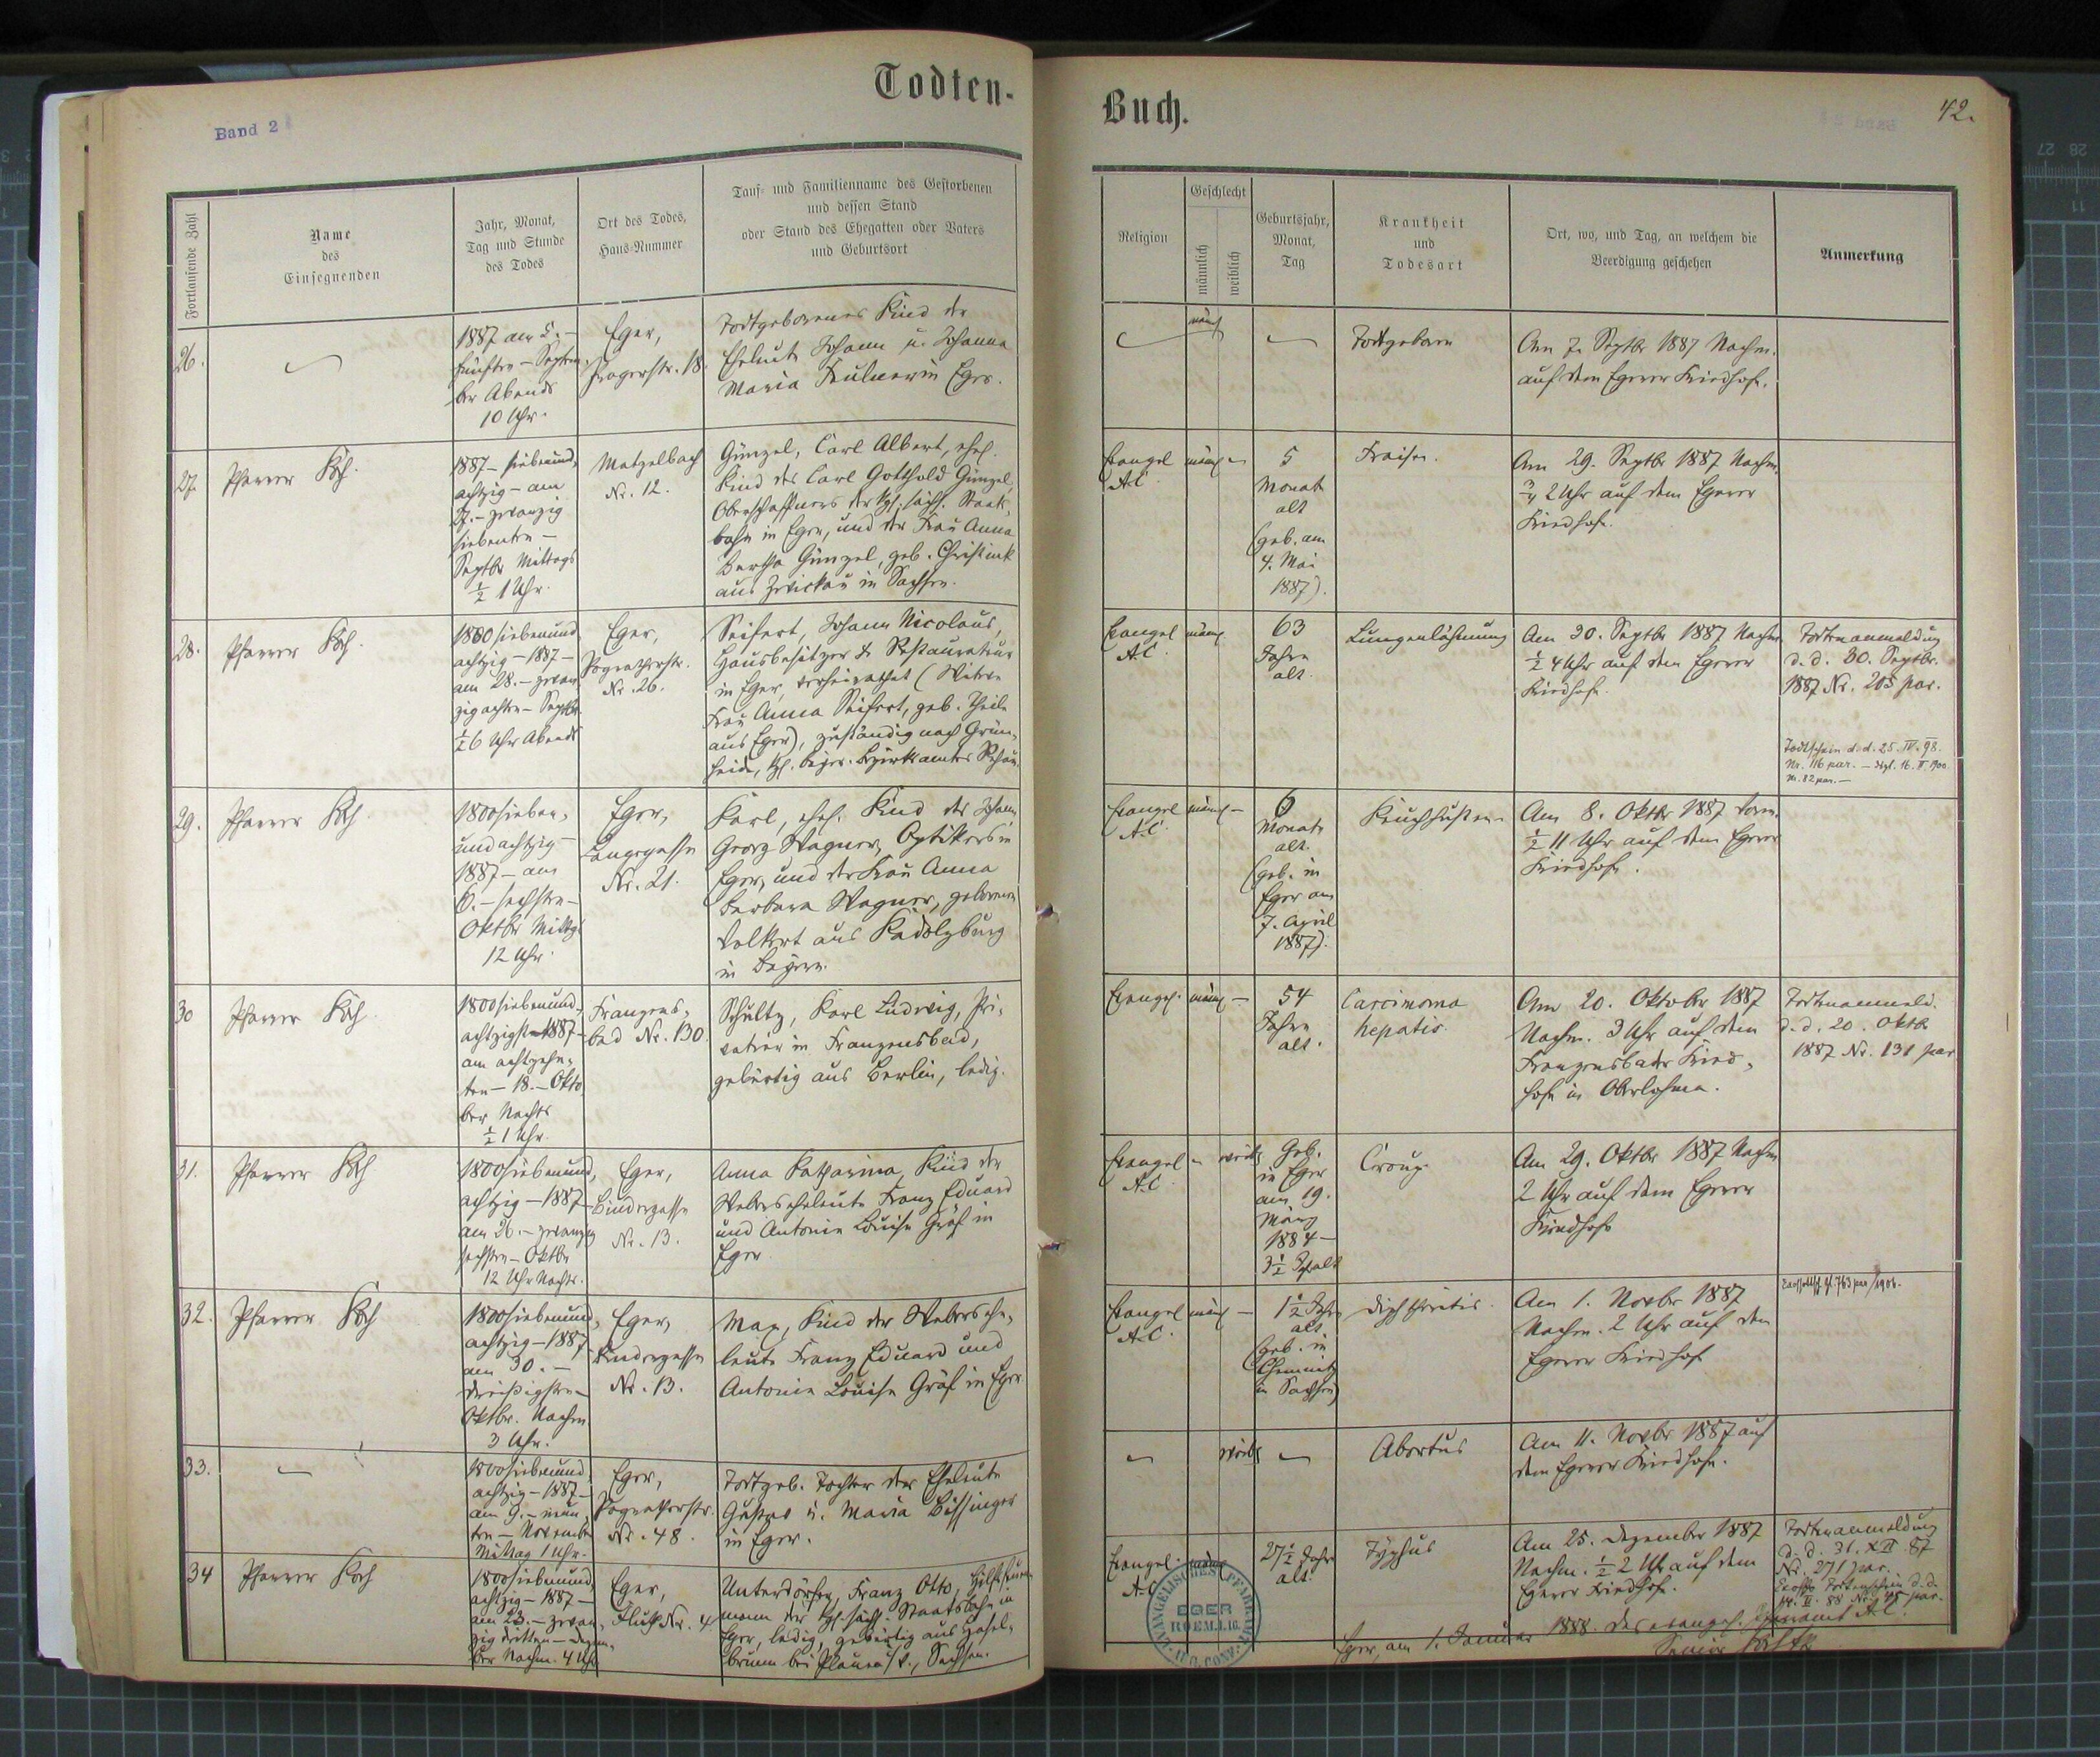 Todten-
Buch.
Band 2
42.
Fortlaufende Zahl
Name
des
Einsegnenden
Jahr, Monat,
Tag und Stunde
des Todes
Ort des Todes,
Haus-Nummer
Tauf- und Familienname des Gestorbenen
und dessen Stand
oder Stand des Ehegatten oder Vaters
und Geburtsort
Religion
Geschlecht
männlich
weiblich
Geburtsjahr,
Monat,
Tag
Krankheit
und
Todesart
Ort, wo, und Tag, an welchem die
Beerdigung geschehen
Anmerkung
26.
1887 am 5.-
fünften - Septem-
ber Abends
10 Uhr.
Eger,
Pragerstr. 18.
Todtgeborenes Kind der
Eheleute Johann u. Johanna
Maria in Eger.
männl
Todtgeboren
Am 7. Septbr 1887 Nachm.
auf dem Egerer Friedhofe.
27.
Pfarrer Koch.
1887 - siebenund-
achtzig - am
27. - zwanzig
siebenten -
Septbr Mittags
½ 1 Uhr.
Matzelbach
Nr. 12.
Günzel, Carl Albert, ehel.
Kind des Carl Gotthold Günzel,
Oberschaffners der kgl. sächs. Staats-
bahn in Eger, und der Frau Anna
Bertha Günzel, geb.
aus Zwickau in Sachsen.
Evangel
A.C.
männl
5
Monate
alt
(geb. am
4. Mai
1887).
Fraisen.
Am 29. Septbr 1887 Nachm.
¾ 2 Uhr auf dem Egerer
Friedhofe.
28.
Pfarrer Koch.
1800 siebenund-
achtzig - 1887 -
am 28. - zwan-
zig achten - Septbr
½ 6 Uhr Abends
Eger,
Pogratherstr.
Nr. 26.
Seifert, Johann Nicolaus,
Hausbesitzer & Restaurateur
in Eger, verheirathet (Witwe
Frau Anna Seifert, geb. Theile
aus Eger), zuständig nach Grün-
heide, kgl. bayer. Bezirksamtes Rehau.
Evangel
A.C.
männl
63
Jahre
alt.
Lungenlähmung
Am 30. Septbr 1887 Nachm.
½ 4 Uhr auf dem Egerer
Friedhofe.
Todtenanmeldung
d. d. 30. Septbr.
1887 Nr. 205 par.
Todtschein d. d. 25. IV. 98.
Nr. 116 par. - dtgl. 16. II. 1900.
Nr. 82 par. -
29.
Pfarrer Koch.
1800 sieben-
und achtzig -
1887 - am
6. - sechsten -
Oktbr Mittgs
12 Uhr.
Eger,
Langegasse
Nr. 21.
Karl, ehel. Kind des Johann
Georg Wagner, Optikers in
Eger, und der Frau Anna
Barbara Wagner, geborenen
Volkert aus Kadolzburg
in Bayern.
Evangel
A.C.
männl -
6
Monate
alt.
(geb. in
Eger am
7. April
1887).
Keuchhusten
Am 8. Oktbr 1887 Vorm.
½ 11 Uhr auf dem Egerer
Friedhofe.
30
Pfarrer Koch.
1800 siebenund-
achtzigsten 1887 -
am achtzehn-
ten - 18. - Okto-
ber Nachts
½ 1 Uhr.
Franzens-
bad Nr. 130.
Schultz, Karl Ludwig, Pri-
vatier in Franzensbad,
gebürtig aus Berlin, ledig.
Evangel.
männl -
54
Jahre
alt.
Carcinoma
hepatis
Am 20. Oktober 1887
Nachm. 3 Uhr auf dem
Franzensbader Fried-
hofe in Oberlohma.
Todtenanmeld.
d. d. 20. Oktb
1887 Nr. 131 par
31.
Pfarrer Koch
1800 siebenund-
achtzig - 1887 -
am 26. - zwanzig
sechsten - Oktbr
12 Uhr Nachts.
Eger,
Bindergasse
Nr. 13.
Anna Katharina, Kind der
Weberseheleute Franz Eduard
und Antonie Louise Gräf in
Eger.
Evangel
A.C.
weibl
Geb.
in Eger
am 19.
März
1884 -
3½ J. alt
Croup.
Am 29. Oktbr 1887 Nachm
2 Uhr auf dem Egerer
Friedhofe
32.
Pfarrer Koch
1800 siebenund-
achtzig - 1887
am 30. -
dreißigsten -
Oktbr. Nachm.
3 Uhr.
Eger,
Bindergasse
Nr. 13.
Max, Kind der Webersehe-
leute Franz Eduard und
Antonie Louise Gräf in Eger
Evangel
A.C.
männl -
1½ Jahre
alt
(geb. in
Chemnitz
in Sachsen)
Diphtheritis.
Am 1. Novbr 1887
Nachm. 2 Uhr auf dem
Egerer Friedhof
33.
1800 siebenund-
achtzig - 1887 -
am 9. - neun-
ten - November
Mittag 1 Uhr.
Eger,
Pogratherstr.
Nr. 48.
Todtgeb. Tochter der Eheleute
Gustav u. Maria Bissinger
in Eger.
weibl
Abortus
Am 11. Novbr 1887 auf
dem Egerer Friedhofe.
34
Pfarrer Koch
1800 siebenund-
achtzig - 1887 -
am 23. - zwan-
zig dritten - Dezem-
ber Nachm. 4 Uhr
Eger,
Nr. 4
Unterdörfer, Franz Otto,
mann der kgl. sächs. Staatsbahn in
Eger, ledig, gebürtig aus Hasel-
brunn bei Plauen i/V., Sachsen.
Evangel.
A.C.
männl
27½ Jahre
alt.
Typhus
Am 25. Dezember 1887
Nachm. ½ 2 Uhr auf dem
Egerer Friedhofe.
Todtenanmeldung
d. d. 31. XII 87
Nr. 271 par.
Exoffo Todtenschein d. d.
14. II. 88 Nr. 45 par.
EVANGELISCHES PFARRAMT
EGER
H.G. CONF.
Eger, am 1. Januar 1888. Das evangel. Pfarramt A.C.